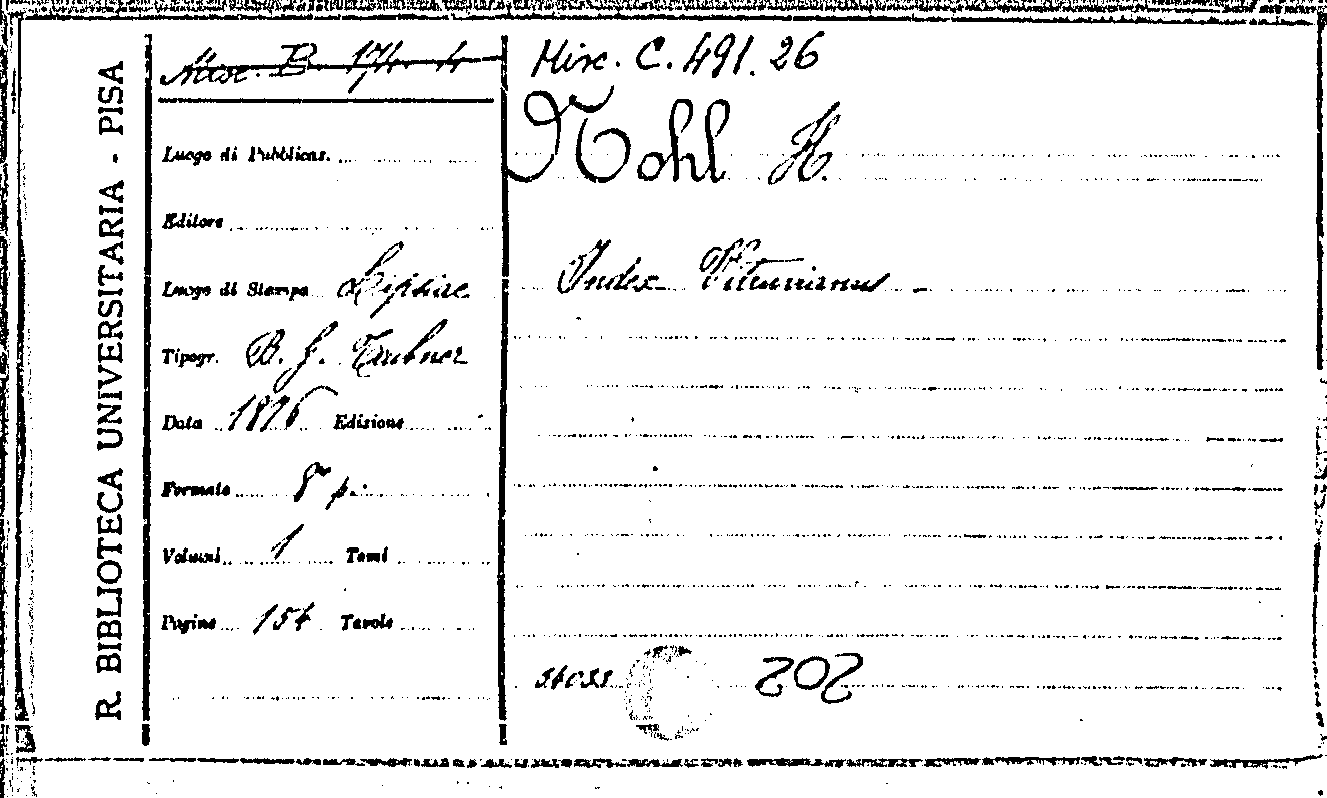 R. BIBLIOTECA UNIVERSITARIA - PISA
Misc. B. 174. 4
Misc. C. 491. 26
Nohl H.
Luogo di Pubblicaz.
Editore
Luogo di Stampa Lipsiae
Index Vitruvianus
Tipogr. B. G. Teubner
Data 1876 Edizione
Formato 8° p.
Volumi 1 Tomi
Pagine 154 Tavole
202